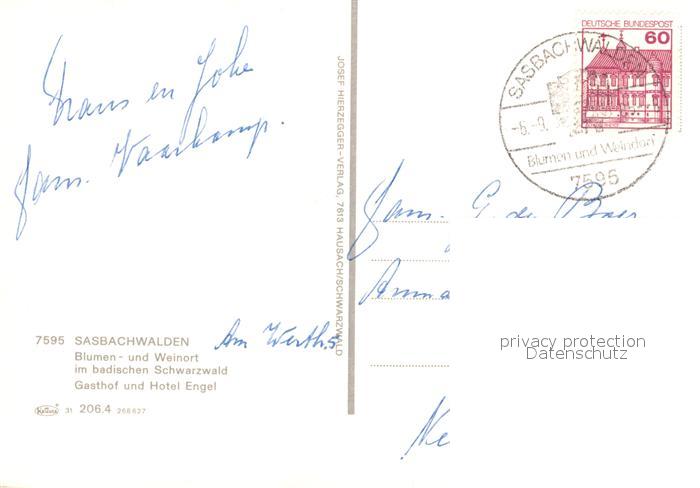 Frans en Joke
Fam. Vaarkamp.
7595 SASBACHWALDEN
Blumen- und Weinort
im badischen Schwarzwald
Gasthof und Hotel Engel
Am Werth 5
31 206.4 266627
JOSEF HIERZEGGER-VERLAG, 7613 HAUSACH/SCHWARZWALD
DEUTSCHE BUNDESPOST
60
SASBACHWALDEN
-5.-9.
Blumen und Weindorf
7595
Fam. G. de Boer
privacy protection
Datenschutz